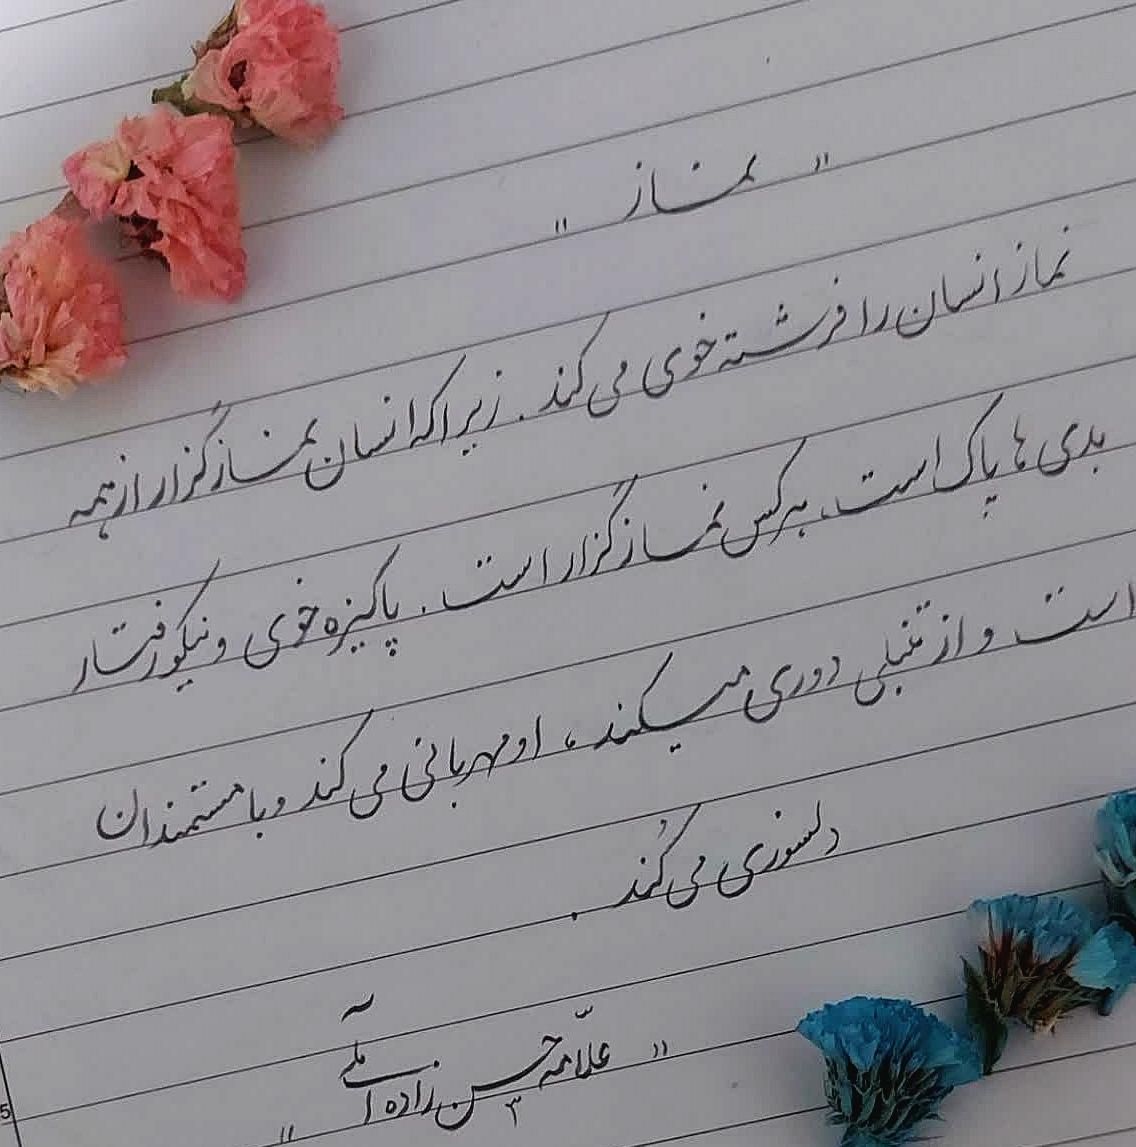 " نماز "
نماز انسان را فرشته خوی می کند . زیرا که انسان نمازگزار از همه
بدی ها پاک است . هر کس نمازگزار است . پاکیزه خوی و نیکو رفتار
است و از تنبلی دوری میکند ، او مهربانی می کند و با مستمندان
دلسوزی می کُند .
" علّامه حسن زاده آملی "
5